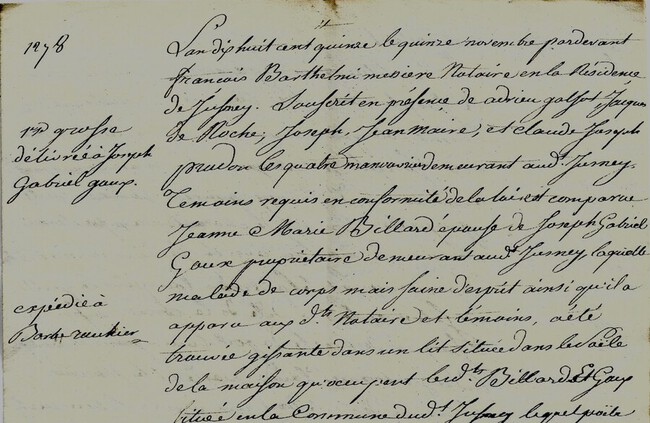 1278
L'an dix huit cent quinze le quinze novembre pardevant
francois Barthelmi mediere Notaire en la Résidence
1ere grosse
délivrée à Joseph
Gabriel gaux.
de Jusney. Soussigné en présence de adrien galfot, Jacques
de Roche, Joseph, Jean Maire, et claude Joseph
prudon les quatre manouvriers demeurant aud. Jusney.
Temoins requis en conformité de la loi est comparue
Jeanne Marie Billard épouse de Joseph Gabriel
Gaux propriétaire demeurant aud. Jusney laquelle
expédiée à
malade de corps mais saine d'esprit ainsi qu'il a
apparu aux d.ts Notaire et témoins, a été
trouvée gissante dans un lit située dans le Poële
de la maison qu'occupent le d.ts Billard Et Gaux
située en la Commune du d.t Jusney lequel poële